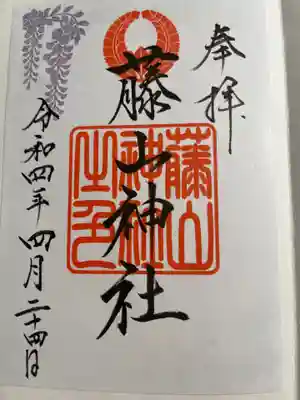 奉拝
藤山神社
藤山神社之印
令和四年四月二十四日